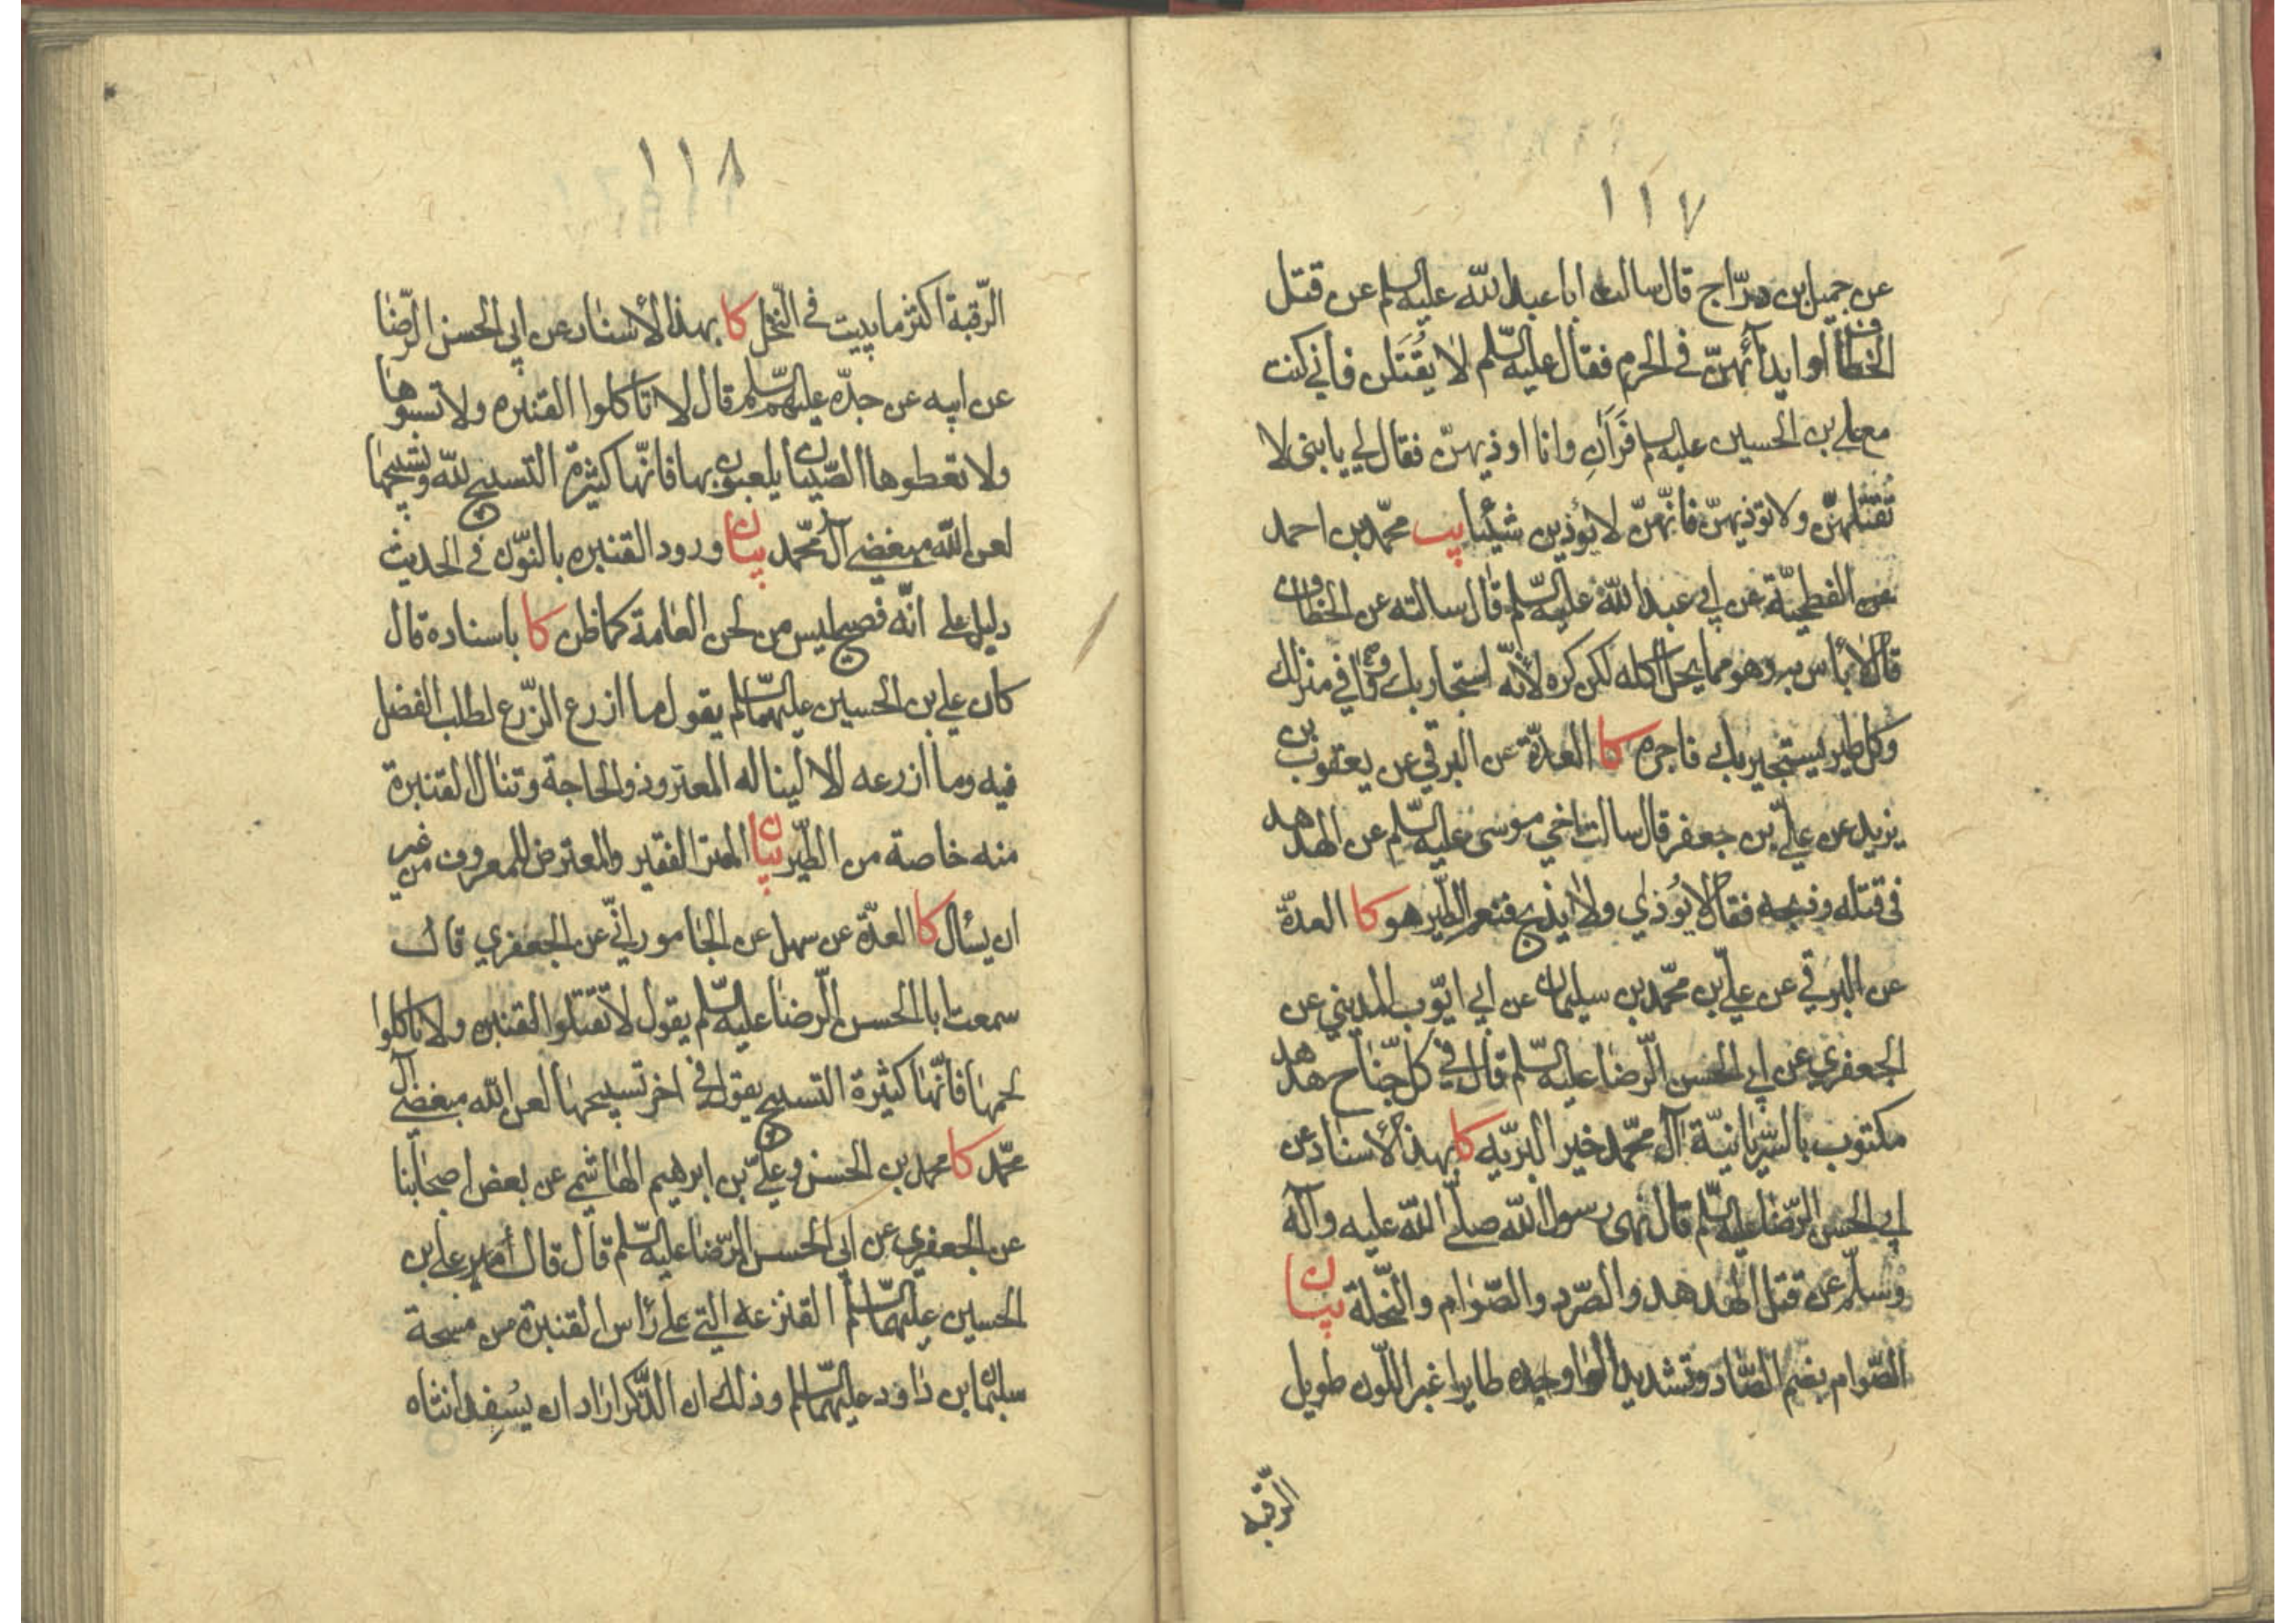 ١١٧
عن جميل بن درّاج قال سالت ابا عبد الله عليه السلم عن قتل
الخطاف او ايذائهنّ في الحرم فقال عليه السّلم لا يُقتَلن فاني كنت
مع علي بن الحسين عليه السلم فَرَآني وانا اوذيهنّ فقال لي يا بنى لا
تقتلهنّ ولا تؤذيهنّ فانّهنّ لا يؤذين شيئا يب محمّد بن احمد
عن الفطحيّة عن ابي عبد الله عليه السّلم قال سالته عن الخطاف
قال لا بأس به وهو مما يحل اكله لكن كره لأنّه استجار بك ووافي منزلك
وكل طير يستجير بك فاجره كا العدّة عن البرقي عن يعقوب بن
يزيد عن عليّ بن جعفر قال سالت اخي موسى عليه السّلم عن الهدهد
فى قتله وذبحه فقال لا يُوذي ولا يذبح فنعم الطّير هو كا العدّة
عن البرقي عن عليّ بن محمّد بن سليمان عن ابي ايّوب المديني عن
الجعفري عن ابي الحسن الرّضا عليه السّلم قال في كل جناح هدهد
مكتوب بالسّريانيّة آل محمّد خير البريّه كا بهذا لأسناد عن
ابي الحسن الرّضا عليه السّلم قال نهى رسول الله صلّى الله عليه وآله
وسلّم عن قتل الهدهد والصّرد والصّوام والنّحلة بيان
الصّوام بضم الصّاد وتشديد الواو طاير اغبر اللّون طويل
الرّقبه
١١٨
الرّقبة اكثر ما يبيت في النّخل كا بهذا لأسناد عن ابي الحسن الرّضا
عن ابيه عن جدّه عليهم السّلم قال لا تاكلوا القنبره ولا تسبوها
ولا تعطوها الصّبيان يلعبون بها فانّها كثيرة التسبيح لله وتسبيحها
لعن الله مبغضي آل محمّد بيان ورود القنبره بالنّون في الحديث
دليل على انّه فصيح ليس من لحن العامة كما ظن كا باسناده قال
كان علي بن الحسين عليهما السّلم يقول ما ازرع الزّرع لطلب الفضل
فيه وما ازرعه الا ليناله المعتر وذو الحاجة وتنال القنبرة
منه خاصة من الطّير بيان المعتر الفقير والمعترض للمعروف من غير
ان يسأل كا العدّة عن سهل عن الجامورانيّ عن الجعفري قال
سمعت ابا الحسن الرّضا عليه السّلم يقول لا تقتلوا القنبره ولا تاكلوا
لحمها فانّها كثيرة التسبيح يقول في اخر تسبيحها لعن الله مبغضي آل
محمّد كا محمد بن الحسن وعليّ بن ابرهيم الهاشمي عن بعض اصحابنا
عن الجعفري عن ابي الحسن الرّضا عليه السّلم قال قال علي بن
الحسين عليهما السّلم القنزعه التي على رأس القنبرة من مسحة
سليمان بن داود عليهما السّلم وذلك ان الذّكر اراد ان يسفد انثاه